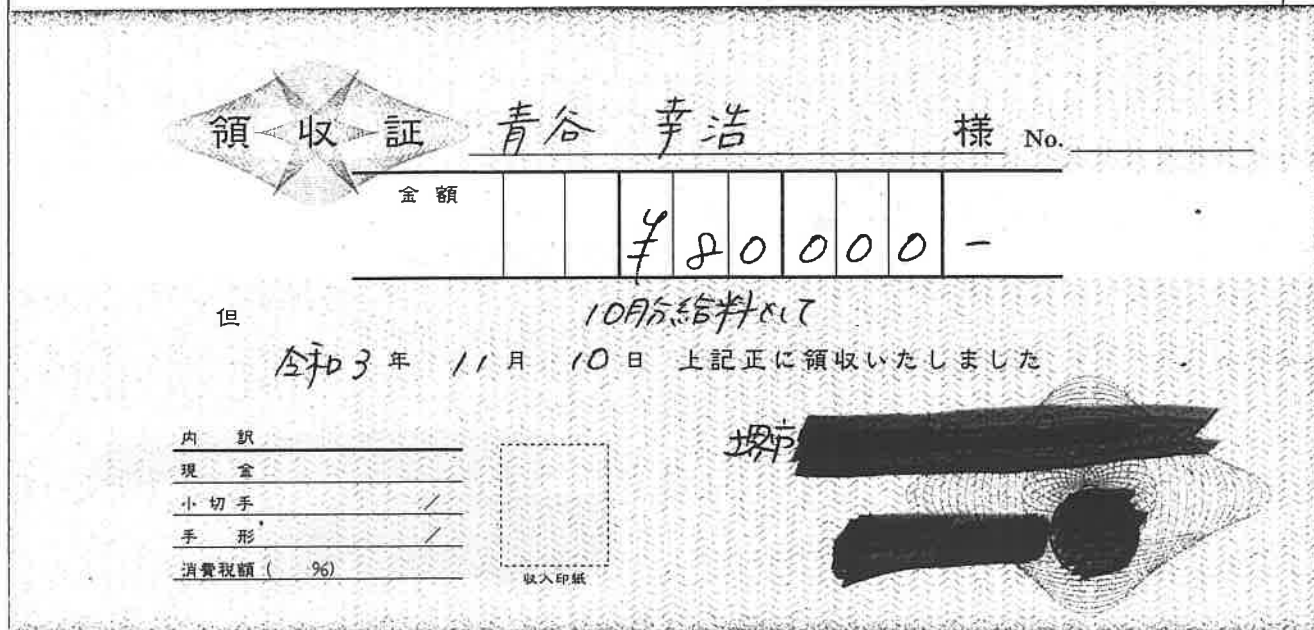 領収証 青谷 幸浩 様 No.
金額 ¥80000-
但 10月分給料として
令和3年 11月 10日 上記正に領収いたしました
堺市
内訳
現金
小切手 /
手形 /
消費税額 ( %)
収入印紙